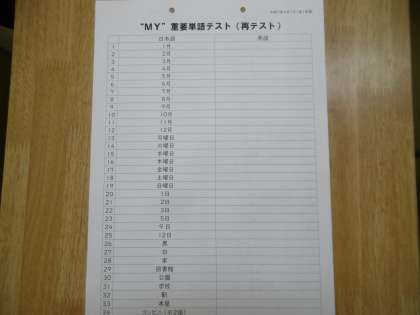 "MY" 重要単語テスト(再テスト)
日本語 英語
1 1月
2 2月
3 3月
4 4月
5 5月
6 6月
7 7月
8 8月
9 9月
10 10月
11 11月
12 12月
13 月曜日
14 火曜日
15 水曜日
16 木曜日
17 金曜日
18 土曜日
19 日曜日
20 1日
21 2日
22 3日
23 5日
24 9日
25 12日
26 男
27
28 家
29 図書館
30 公園
31 学校
32 駅
33 本屋
34 コンビニ